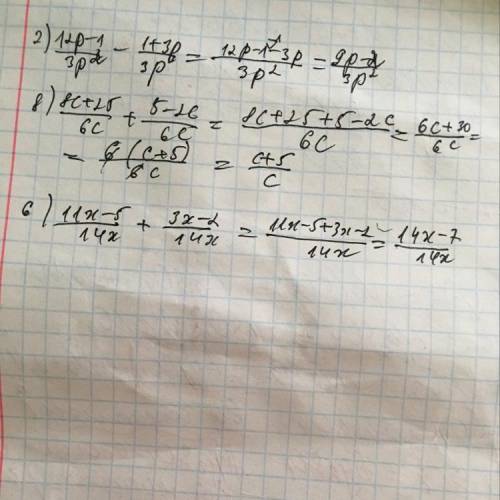 2) (12p-1)/(3p²) - (1+3p)/(3p²) = (12p-1-1-3p)/(3p²) = (9p-2)/(3p²)
8) (8c+25)/(6c) + (5-2c)/(6c) = (8c+25+5-2c)/(6c) = (6c+30)/(6c) =
= (6(c+5))/(6c) = (c+5)/c
6) (11x-5)/(14x) + (3x-2)/(14x) = (11x-5+3x-2)/(14x) = (14x-7)/(14x)